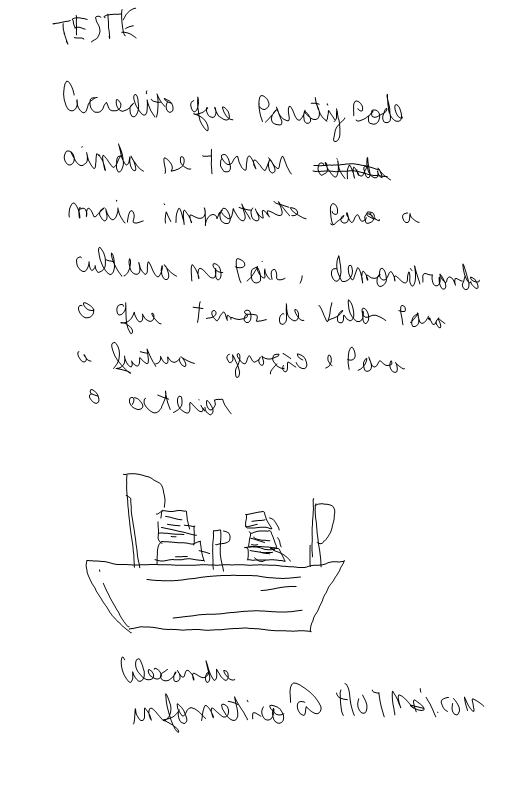 TESTE
Acredito que Paraty pode
ainda se tornar ainda
mais importante para a
cultura no Pais, demonstrando
o que temos de Valor Para
a futura geração e Para
o exterior
Alexandre
infometico@HOTMAI.COM